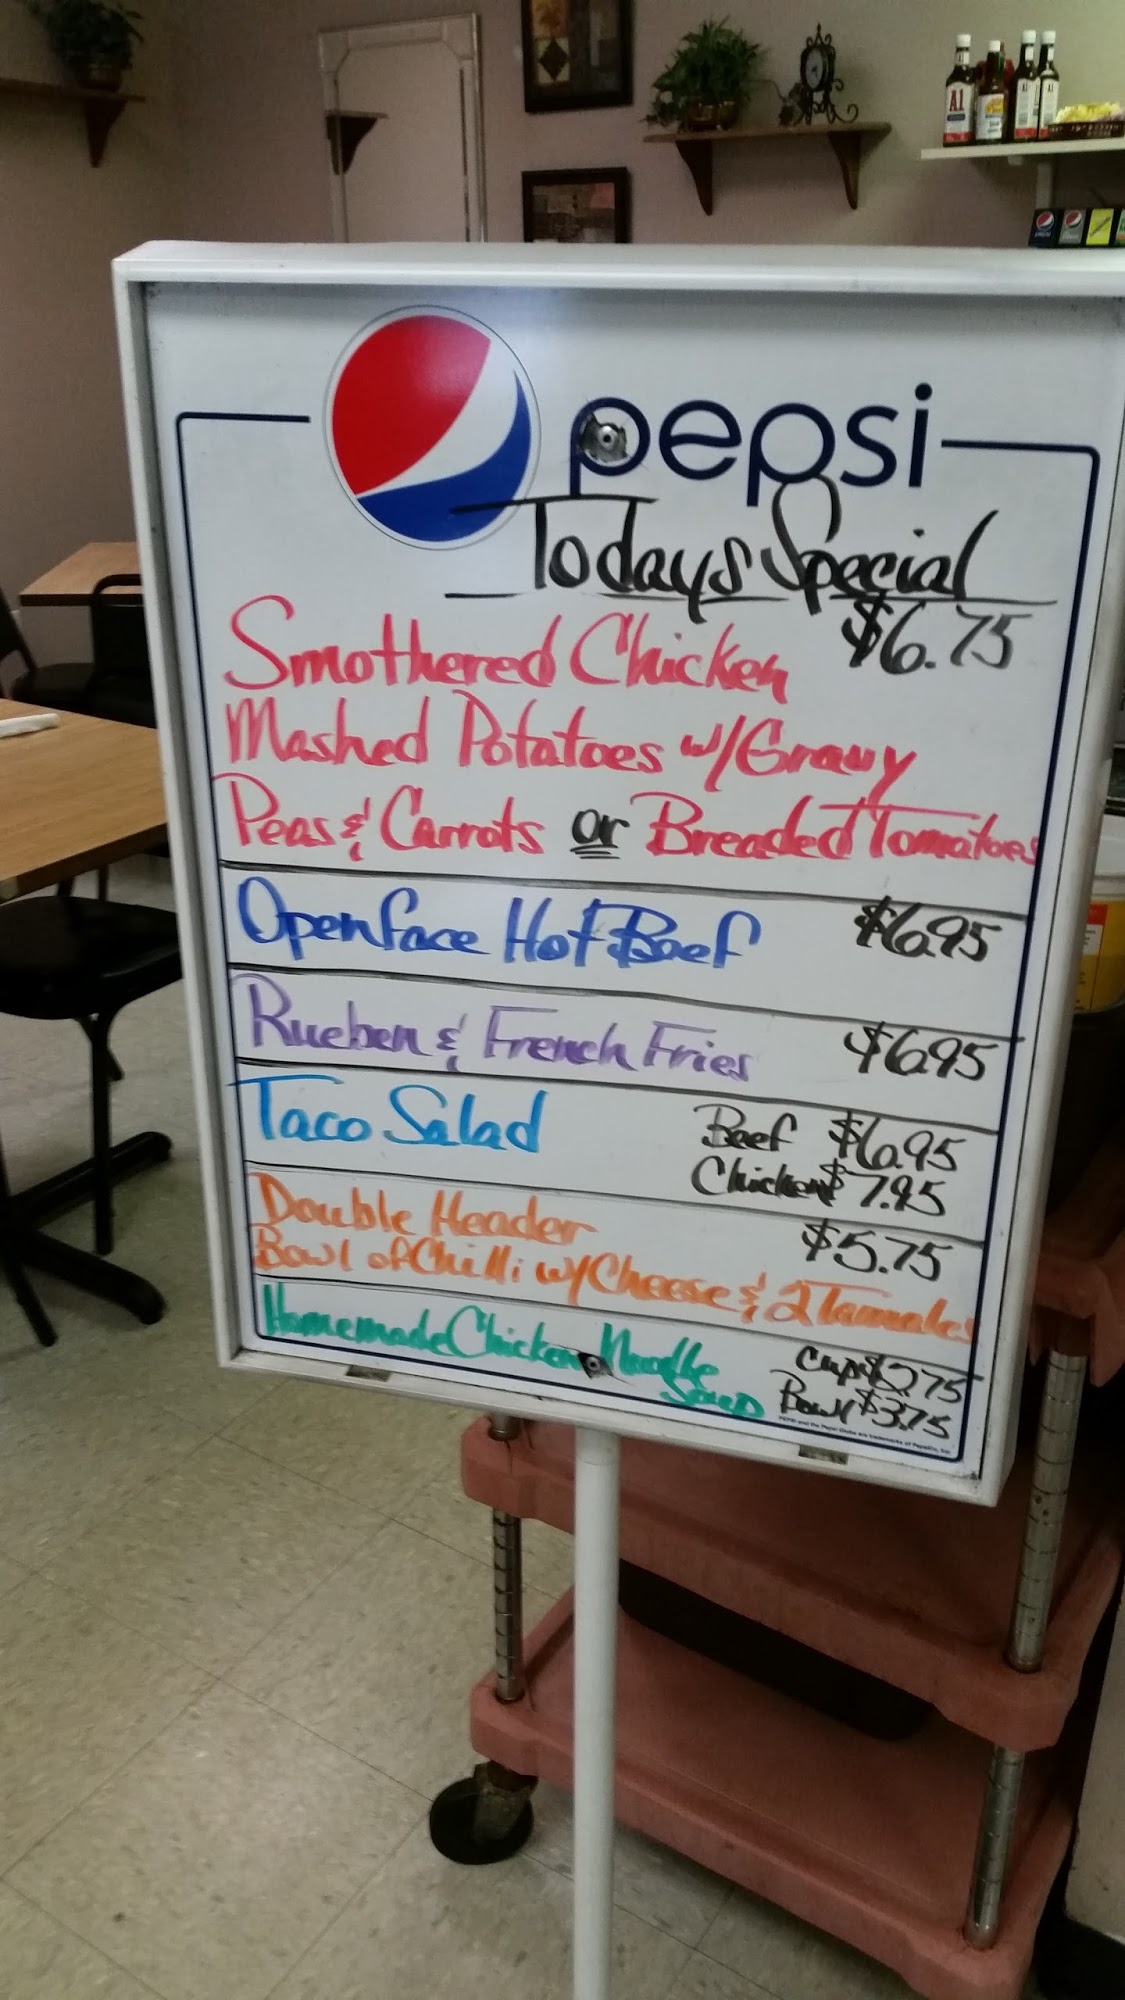 A1
pepsi
Todays Special
$6.75
Smothered Chicken
Mashed Potatoes w/Gravy
Peas & Carrots or Breaded Tomatoes
Openface Hot Beef $6.95
Rueben & French Fries $6.95
Taco Salad Beef $6.95
Chicken $7.95
Double Header $5.75
Bowl of Chilli w/Cheese & 2 Tamales
Homemade Chicken Noodle Soup
Cup $2.75
Bowl $3.75